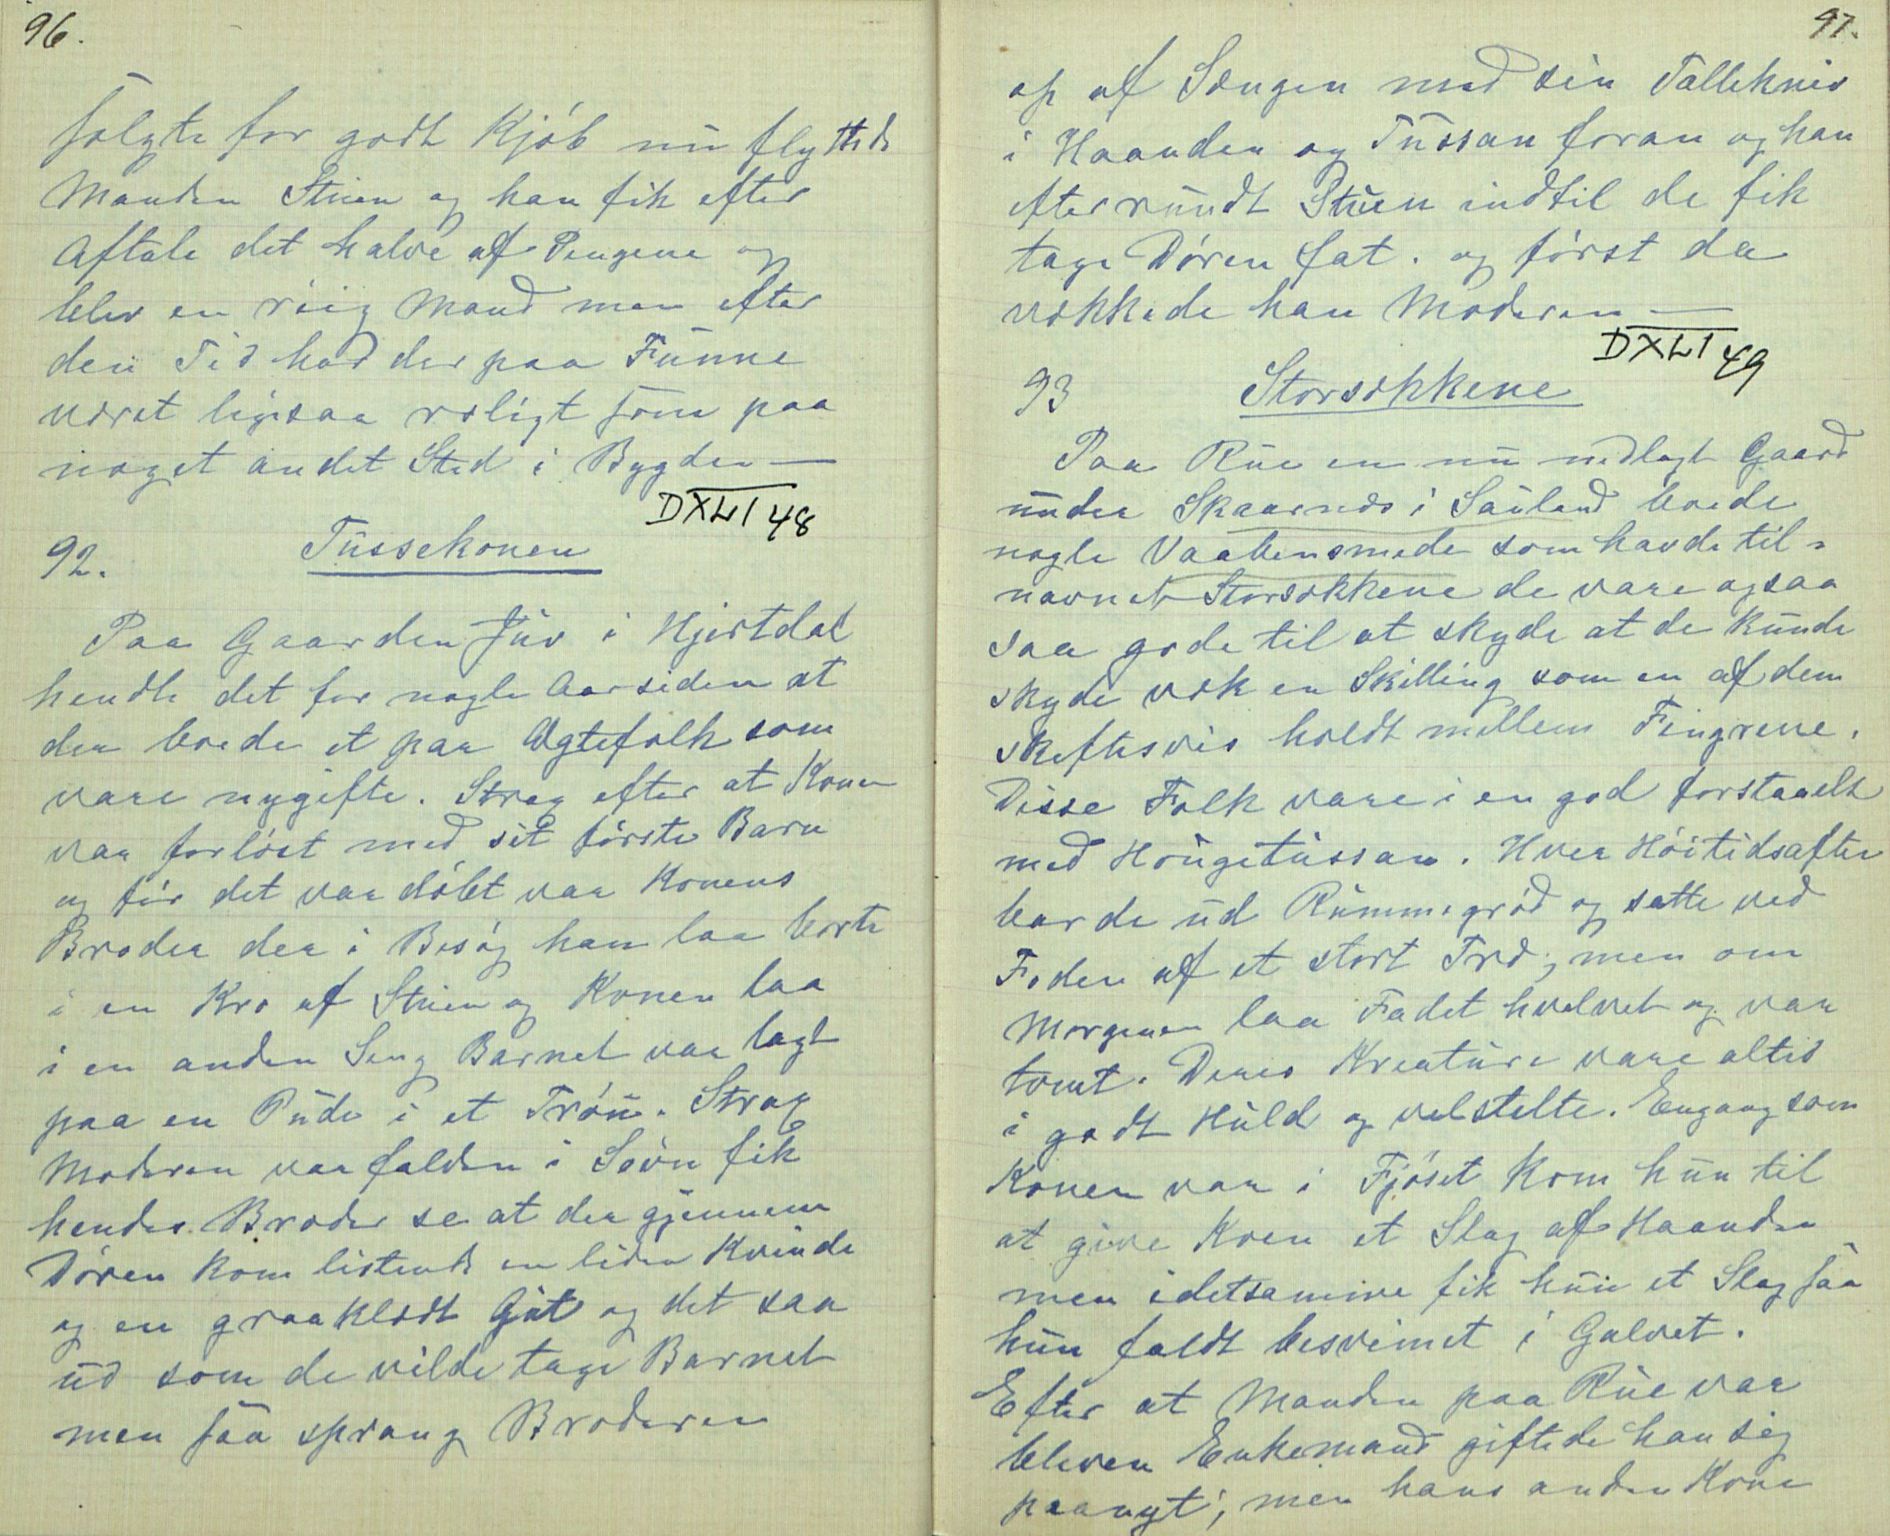 96.
solgte for godt Kjöb nu flyttede
Manden Stuen og han fik efter
Aftale det halve af Pengene og
blev en riig Mand men efter
den Tid har der paa Funne
været ligesaa roligt som paa
noget andet Sted i Bygden —
DXLI 48
92. Tussekonen
Paa Gaarden Juv i Hjertdal
hendte det for nogle Aar siden at
der boede et par Ægtefolk som
vare nygifte. Strax efter at Konen
var forløst med sit første Barn
og før det var døbt var Konens
Broder der i Besøg han laa borte
i en Kro af Stuen og Konen laa
i en anden Seng Barnet var lagt
paa en Pude i et Trøu. Strax
Moderen var falden i Søvn fik
hendes Broder se at der gjennem
Døren kom listende en liden Kvinde
og en graaklædt Gut og det saa
ud som de vilde tage Barnet
men saa sprang Broderen
97.
op af Sængen med sin Tollekniv
i Haanden og Tussan foran og han
efter rundt Stuen indtil de fik
tage Døren fat. og først da
vækkede han Moderen —
DXLI 49
93 Storsækkene
Paa Rue en nu nedlagt Gaard
under Skaarnæs i Sauland boede
nogle Vaabensmede som havde til-
navnet Storsækkene de vare ogsaa
saa gode til at skyde at de kunde
skyde væk en Skilling som en af dem
skiftesvis holdt mellem Fingrene.
Disse Folk vare i en god forstaaelse
med Hougetussan. Hver Høitidsaften
bar de ud Rummegrød og satte ved
Foden af et stort Træ, men om
Morgenen laa Fadet hvelvet og var
tomt. Deres Kreature vare altid
i godt Huld og velstelte. Engang som
Konen var i Fjøset kom hun til
at give Koen et Slag af Haanden
men idetsamme fik hun et Slag saa
hun faldt besvimet i Golvet.
Efter at Manden paa Rue var
bleven Enkemand giftede han sig
paanyt; men hans anden Kone